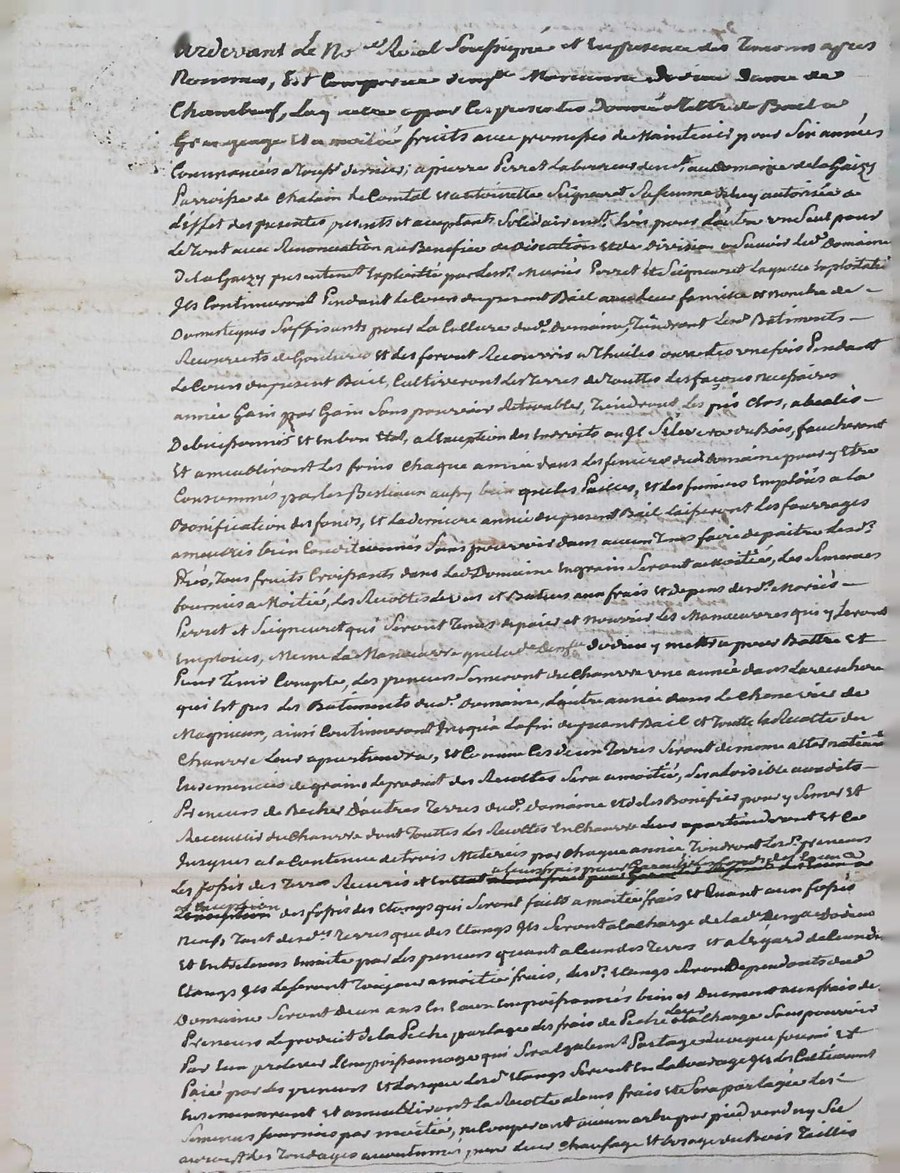 Pardevant Le No.re Roial Soussigné et En presence des Temoins apres
Nommés, Est Comparue Marianne Dame de
Chambeuf, Laquelle a par Ces presentes Donné a Titre de Bail a
Grangeage Et a moitié fruits avec promesses de Maintenir pour Six années
Commancées a Toust dernier, a pierre Perret Laboureur au Domaine de la Gaizy
Parroisse de Chalain Le Comtal et antoinette Seignaret Sa femme de Luy autorisée a
L'effet des presentes presents et acceptants Solidairem.t L'un pour L'autre un Seul pour
Le Tout avec Renonciation au Benefice de Discution et de division a Savoir Led. Domaine
De la Gaizy presentem.t Exploité par Les.d Mariés Perret et Seigneuret Laquelle Exploitation
Jls Continueront Pendant Le Cours du present Bail avec Leur famille et nombre de
Domestiques Suffisants pour La Culture dud. Domaine, Tiendront Les.d Bâtiments
Recouverts de Goutieres et Les feront Recouvrir a Thuiles une fois Pendant
Le Cours du present Bail, Cultiveront Les Terres de Touttes Les façons necessaires
année Gain par Gain Sans pouvoir Tiendront Les prés Clos,
Debuissonnés et En bon Etat, a L'Exception des Endroits ou Jl du Bois, faucheront
Et ameubliront Les foins Chaque année dans Les fenieres dud. Domaine pour y Etre
Consommés par Les Bestiaux aussy bien que Les Pailles, Et Les fumiers Emploiés a la
Bonification des fonds, et La derniere année du present Bail Laisseront Les fourrages
ameublis bien Conditionnés Sans pouvoir dans aucun Tems faire depaitre Les.d
Prés, Tous fruits Croissants dans Led. Domaine En grain Seront a Moitié, Les Semences
fournies a Moitié, Les Recoltes Levées et Battues aux frais et Depens des.d Mariés
Perret et Seigneuret qui Seront Tenus de paier et nourrir Les Manœuvres qui y Seront
Emploiés, Meme La Manœuvre que Lad. y mettra pour Battre Et
Pour Tenir Compte, Les preneurs Semeront du Chanvre une année dans La
qui Est pres Les Bâtiments dud. Domaine, L'autre année dans Le Chenevier de
Magnieux, ainsi Continueront Jusqu'a La fin du present Bail et Toutte La Recolte du
Chanvre Leur apartiendra, et Comme Ces deux Terres Seront de meme alternativement
Ensemencées de grains Le produit des Recoltes Sera a moitié, Sera Loisible auxdits
Preneurs de Becher D'autres Terres dud. Domaine et de Les Bonifier pour y Semer Et
Recueillir du Chanvre dont Touttes Les Recoltes En Chanvre Leur apartiendront Et Ce
Jusques a La Contenue de trois Meterées par Chaque année Tiendront Les.d preneurs
Les fossés des Terres Recurés et En Etat
a L'exception des fossés des Etangs qui Seront faits a moitié frais et Quant aux fossés
Neufs Tant des.d.es Terres que des Etangs Jls Seront a la Charge de Lad.
Et Entretenus Ensuite par Les preneurs quant a Ceux des Terres et a L'égard de Ceux des
Etangs Jls Le Seront Toujours a moitié frais, Les.d Etangs Dependants dud
Domaine Seront Deux ans En Eaux Empoissonnés bien et Duement aux frais des
Preneurs Le produit de La Pêche partagé Les frais de Pêche a Leur Charge Sans pouvoir
Par Eux prelever L'Empoissonnage qui Sera Egalem.t Partagé quoique fourni Et
Paié par Les preneurs et Lorsque Les.d Etangs Seront En Labourage Jls Les Cultiveront
Ensemenceront et ameubliront La Recolte a Leurs frais et Sera partagée Les
Semences fournies par moitié, ne Couperont aucun arbre par pied verd ny Sec
auront Les Tondages accoutumés, pour Leur Chaufage et Usage du Bois Taillis